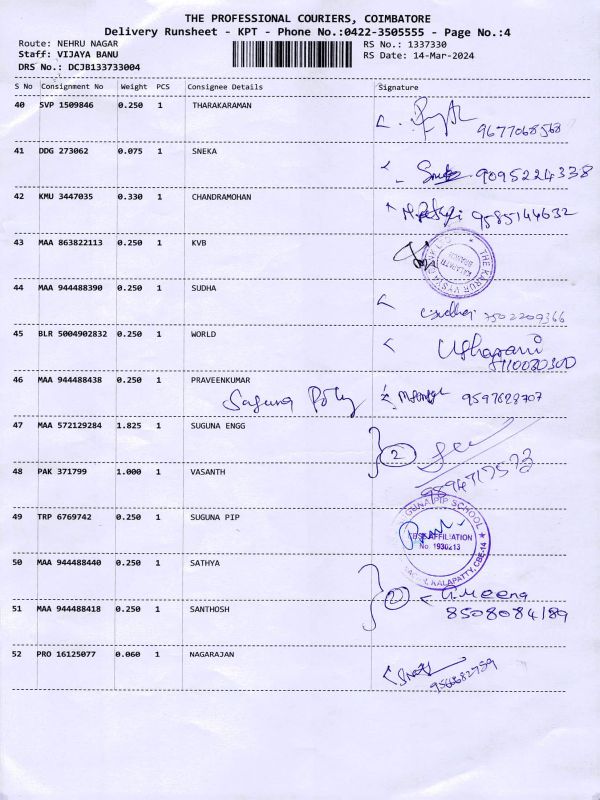 THE PROFESSIONAL COURIERS, COIMBATORE
Delivery Runsheet - KPT - Phone No.:0422-3505555 - Page No.:4
Route: NEHRU NAGAR RS No.: 1337330
Staff: VIJAYA BANU RS Date: 14-Mar-2024
DRS No.: DCJB133733004
S No Consignment No Weight PCS Consignee Details Signature
40 SVP 1509846 0.250 1 THARAKARAMAN
9677068568
41 DDG 273062 0.075 1 SNEKA
9095224338
42 KMU 3447035 0.330 1 CHANDRAMOHAN
9585144632
43 MAA 863822113 0.250 1 KVB
THE KARUR VYSYA BANK
KALAPATTI
BRANCH
44 MAA 944488390 0.250 1 SUDHA
7502209366
45 BLR 5004902832 0.250 1 WORLD
Usharani
46 MAA 944488438 0.250 1 PRAVEENKUMAR
Saguna Poly 9597628707
47 MAA 572129284 1.825 1 SUGUNA ENGG
2
48 PAK 371799 1.000 1 VASANTH
49 TRP 6769742 0.250 1 SUGUNA PIP
SUGUNA PIP SCHOOL
CBSE AFFILIATION
No. 1930213
KALAPATTY, CBE-14
50 MAA 944488440 0.250 1 SATHYA
2 G.Meena
51 MAA 944488418 0.250 1 SANTHOSH
8508084189
52 PRO 16125077 0.060 1 NAGARAJAN